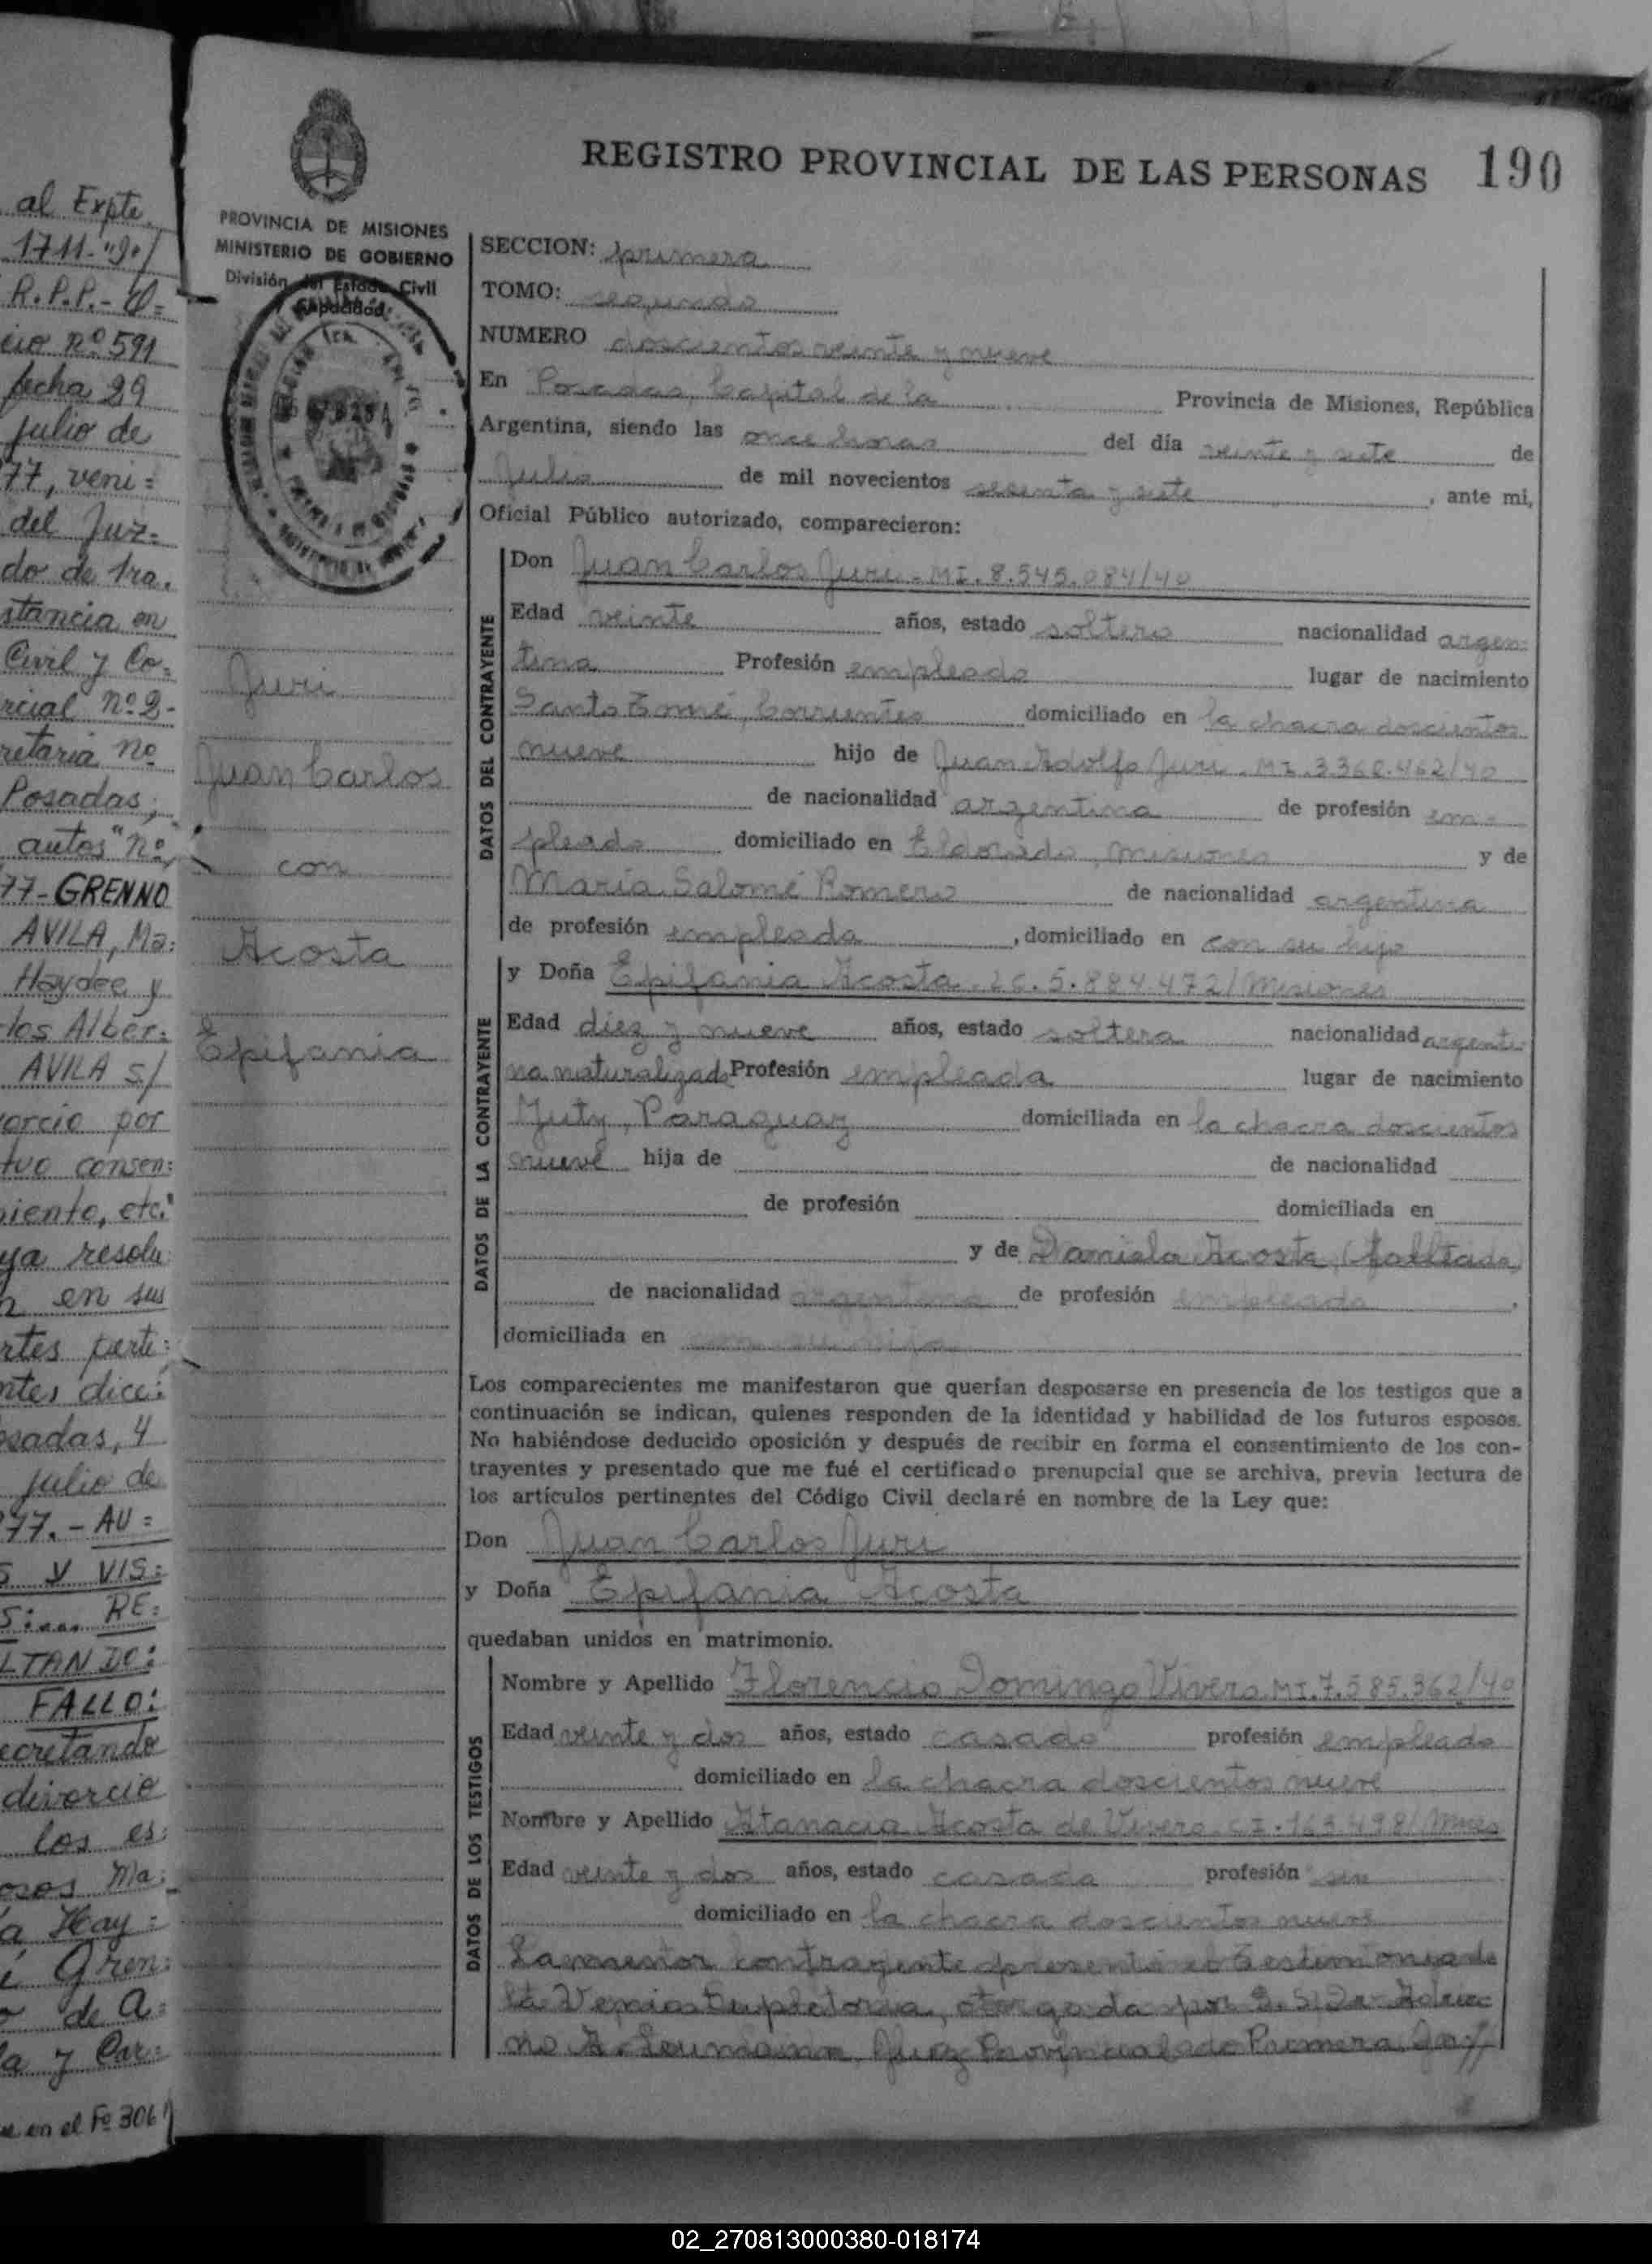 al Expte.
1711-"9"/
R.P.P.-
cio nº 591
fecha 29
julio de
77, veni=
del Juz=
do de 1ra.
stancia en
Civil y Co=
rcial nº 2-
retaria nº
Posadas;
autos "nº
77-GRENNO
AVILA, Ma:
Haydee y
los Alber:
AVILA s/
orcio por
tuo consen:
iento, etc."
ya resolu
n en sus
rtes perti:
ntes dice:
osadas, 4
julio de
77.- AU=
S Y VIS:
S:.... RE:
LTANDO:
FALLO:
ecretando
divorcio
los es:
osos Ma:
a Hay=
é Gren:
o de A:
la y Car:
en el Fº 306
PROVINCIA DE MISIONES
MINISTERIO DE GOBIERNO
División del Estado Civil
y Capacidad
Juri
Juan Carlos
con
Acosta
Epifania
REGISTRO PROVINCIAL DE LAS PERSONAS 190
SECCION: primera
TOMO: segundo
NUMERO doscientos veinte y nueve
En Posadas, Capital de la Provincia de Misiones, República
Argentina, siendo las once horas del día veinte y siete de
Julio de mil novecientos sesenta y siete, ante mi,
Oficial Público autorizado, comparecieron:
DATOS DEL CONTRAYENTE
Don Juan Carlos Juri - MI. 8.545.084/40
Edad veinte años, estado soltero nacionalidad argen=
tina Profesión empleado lugar de nacimiento
Santo Tomé, Corrientes domiciliado en la chacra doscientos
nueve hijo de Juan Adolfo Juri - MI. 3.362.462/40
de nacionalidad argentina de profesión em=
pleado domiciliado en Eldorado, Misiones y de
María Salomé Romero de nacionalidad argentina
de profesión empleada, domiciliado en con su hijo
DATOS DE LA CONTRAYENTE
y Doña Epifania Acosta. 5.884.472/Misiones
Edad diez y nueve años, estado soltera nacionalidad argenti
na naturalizada Profesión empleada lugar de nacimiento
Yuty, Paraguay domiciliada en la chacra doscientos
nueve hija de de nacionalidad
de profesión domiciliada en
y de Daniela Acosta,
de nacionalidad argentina de profesión empleada,
domiciliada en con su hija
Los comparecientes me manifestaron que querían desposarse en presencia de los testigos que a
continuación se indican, quienes responden de la identidad y habilidad de los futuros esposos.
No habiéndose deducido oposición y después de recibir en forma el consentimiento de los con-
trayentes y presentado que me fué el certificado prenupcial que se archiva, previa lectura de
los artículos pertinentes del Código Civil declaré en nombre de la Ley que:
Don Juan Carlos Juri
y Doña Epifania Acosta
quedaban unidos en matrimonio.
DATOS DE LOS TESTIGOS
Nombre y Apellido Florencio Domingo Vivero MI. 7.585.362/40
Edad veinte y dos años, estado casado profesión empleado
domiciliado en la chacra doscientos nueve
Nombre y Apellido Atanacia Acosta de Vivero CI. 163.498/Mnes
Edad veinte y dos años, estado casada profesión sin
domiciliado en la chacra doscientos nueve
La menor contrayente presentó el testimonio de
la Venia Supletoria, otorgada por S.S. Dr. Adria
no A. Juez Provincial de Primera
02_270813000380-018174